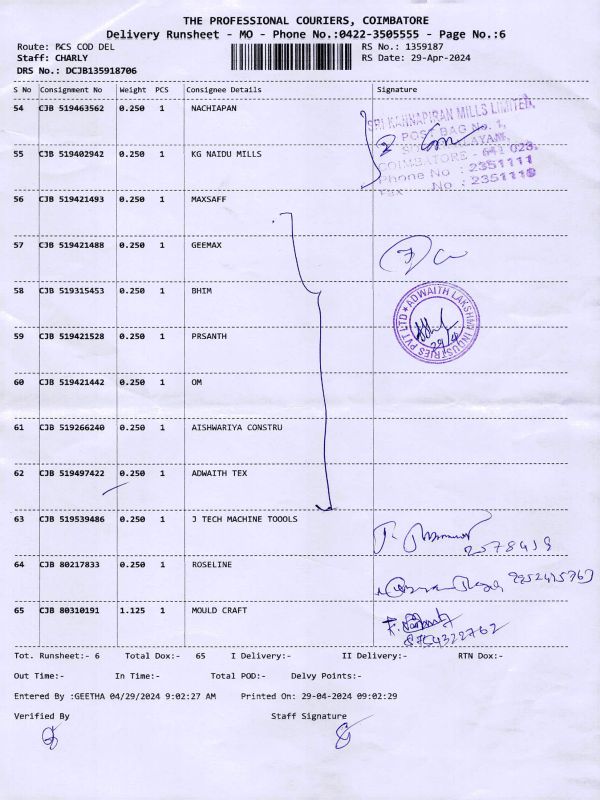 THE PROFESSIONAL COURIERS, COIMBATORE
Delivery Runsheet - MO - Phone No.:0422-3505555 - Page No.:6
Route: PCS COD DEL RS No.: 1359187
Staff: CHARLY RS Date: 29-Apr-2024
DRS No.: DCJB135918706
S No Consignment No Weight PCS Consignee Details Signature
54 CJB 519463562 0.250 1 NACHIAPAN
SRI KANNAPIRAN MILLS LIMITED,
POST BAG No. 1,
55 CJB 519402942 0.250 1 KG NAIDU MILLS
COIMBATORE - 641 028.
Phone No : 2351111
Fax No : 2351110
56 CJB 519421493 0.250 1 MAXSAFF
57 CJB 519421488 0.250 1 GEEMAX 7
58 CJB 519315453 0.250 1 BHIM
ADWAITH LAKSHMI INDUSTRIES PVT LTD
29/4
59 CJB 519421528 0.250 1 PRSANTH
60 CJB 519421442 0.250 1 OM
61 CJB 519266240 0.250 1 AISHWARIYA CONSTRU
62 CJB 519497422 0.250 1 ADWAITH TEX
63 CJB 519539486 0.250 1 J TECH MACHINE TOOOLS
64 CJB 80217833 0.250 1 ROSELINE
65 CJB 80310191 1.125 1 MOULD CRAFT
8754322762
Tot. Runsheet:- 6 Total Dox:- 65 I Delivery:- II Delivery:- RTN Dox:-
Out Time:- In Time:- Total POD:- Delvy Points:-
Entered By :GEETHA 04/29/2024 9:02:27 AM Printed On: 29-04-2024 09:02:29
Verified By Staff Signature